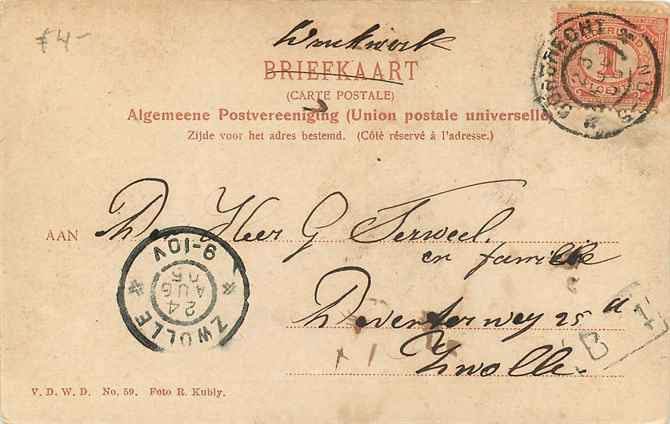 f 4-
Drukwerk
BRIEFKAART
(CARTE POSTALE)
Algemeene Postvereeniging (Union postale universelle)
Zijde voor het adres bestemd. (Côté réservé à l'adresse.)
DORDRECHT
1
AAN De Heer G Terweel.
en familie
Deventerweg 25 d
Zwolle.
ZWOLLE
24
AUG
05
9-10V
B 1
V. D. W. D. No. 59. Foto R. Kubly.